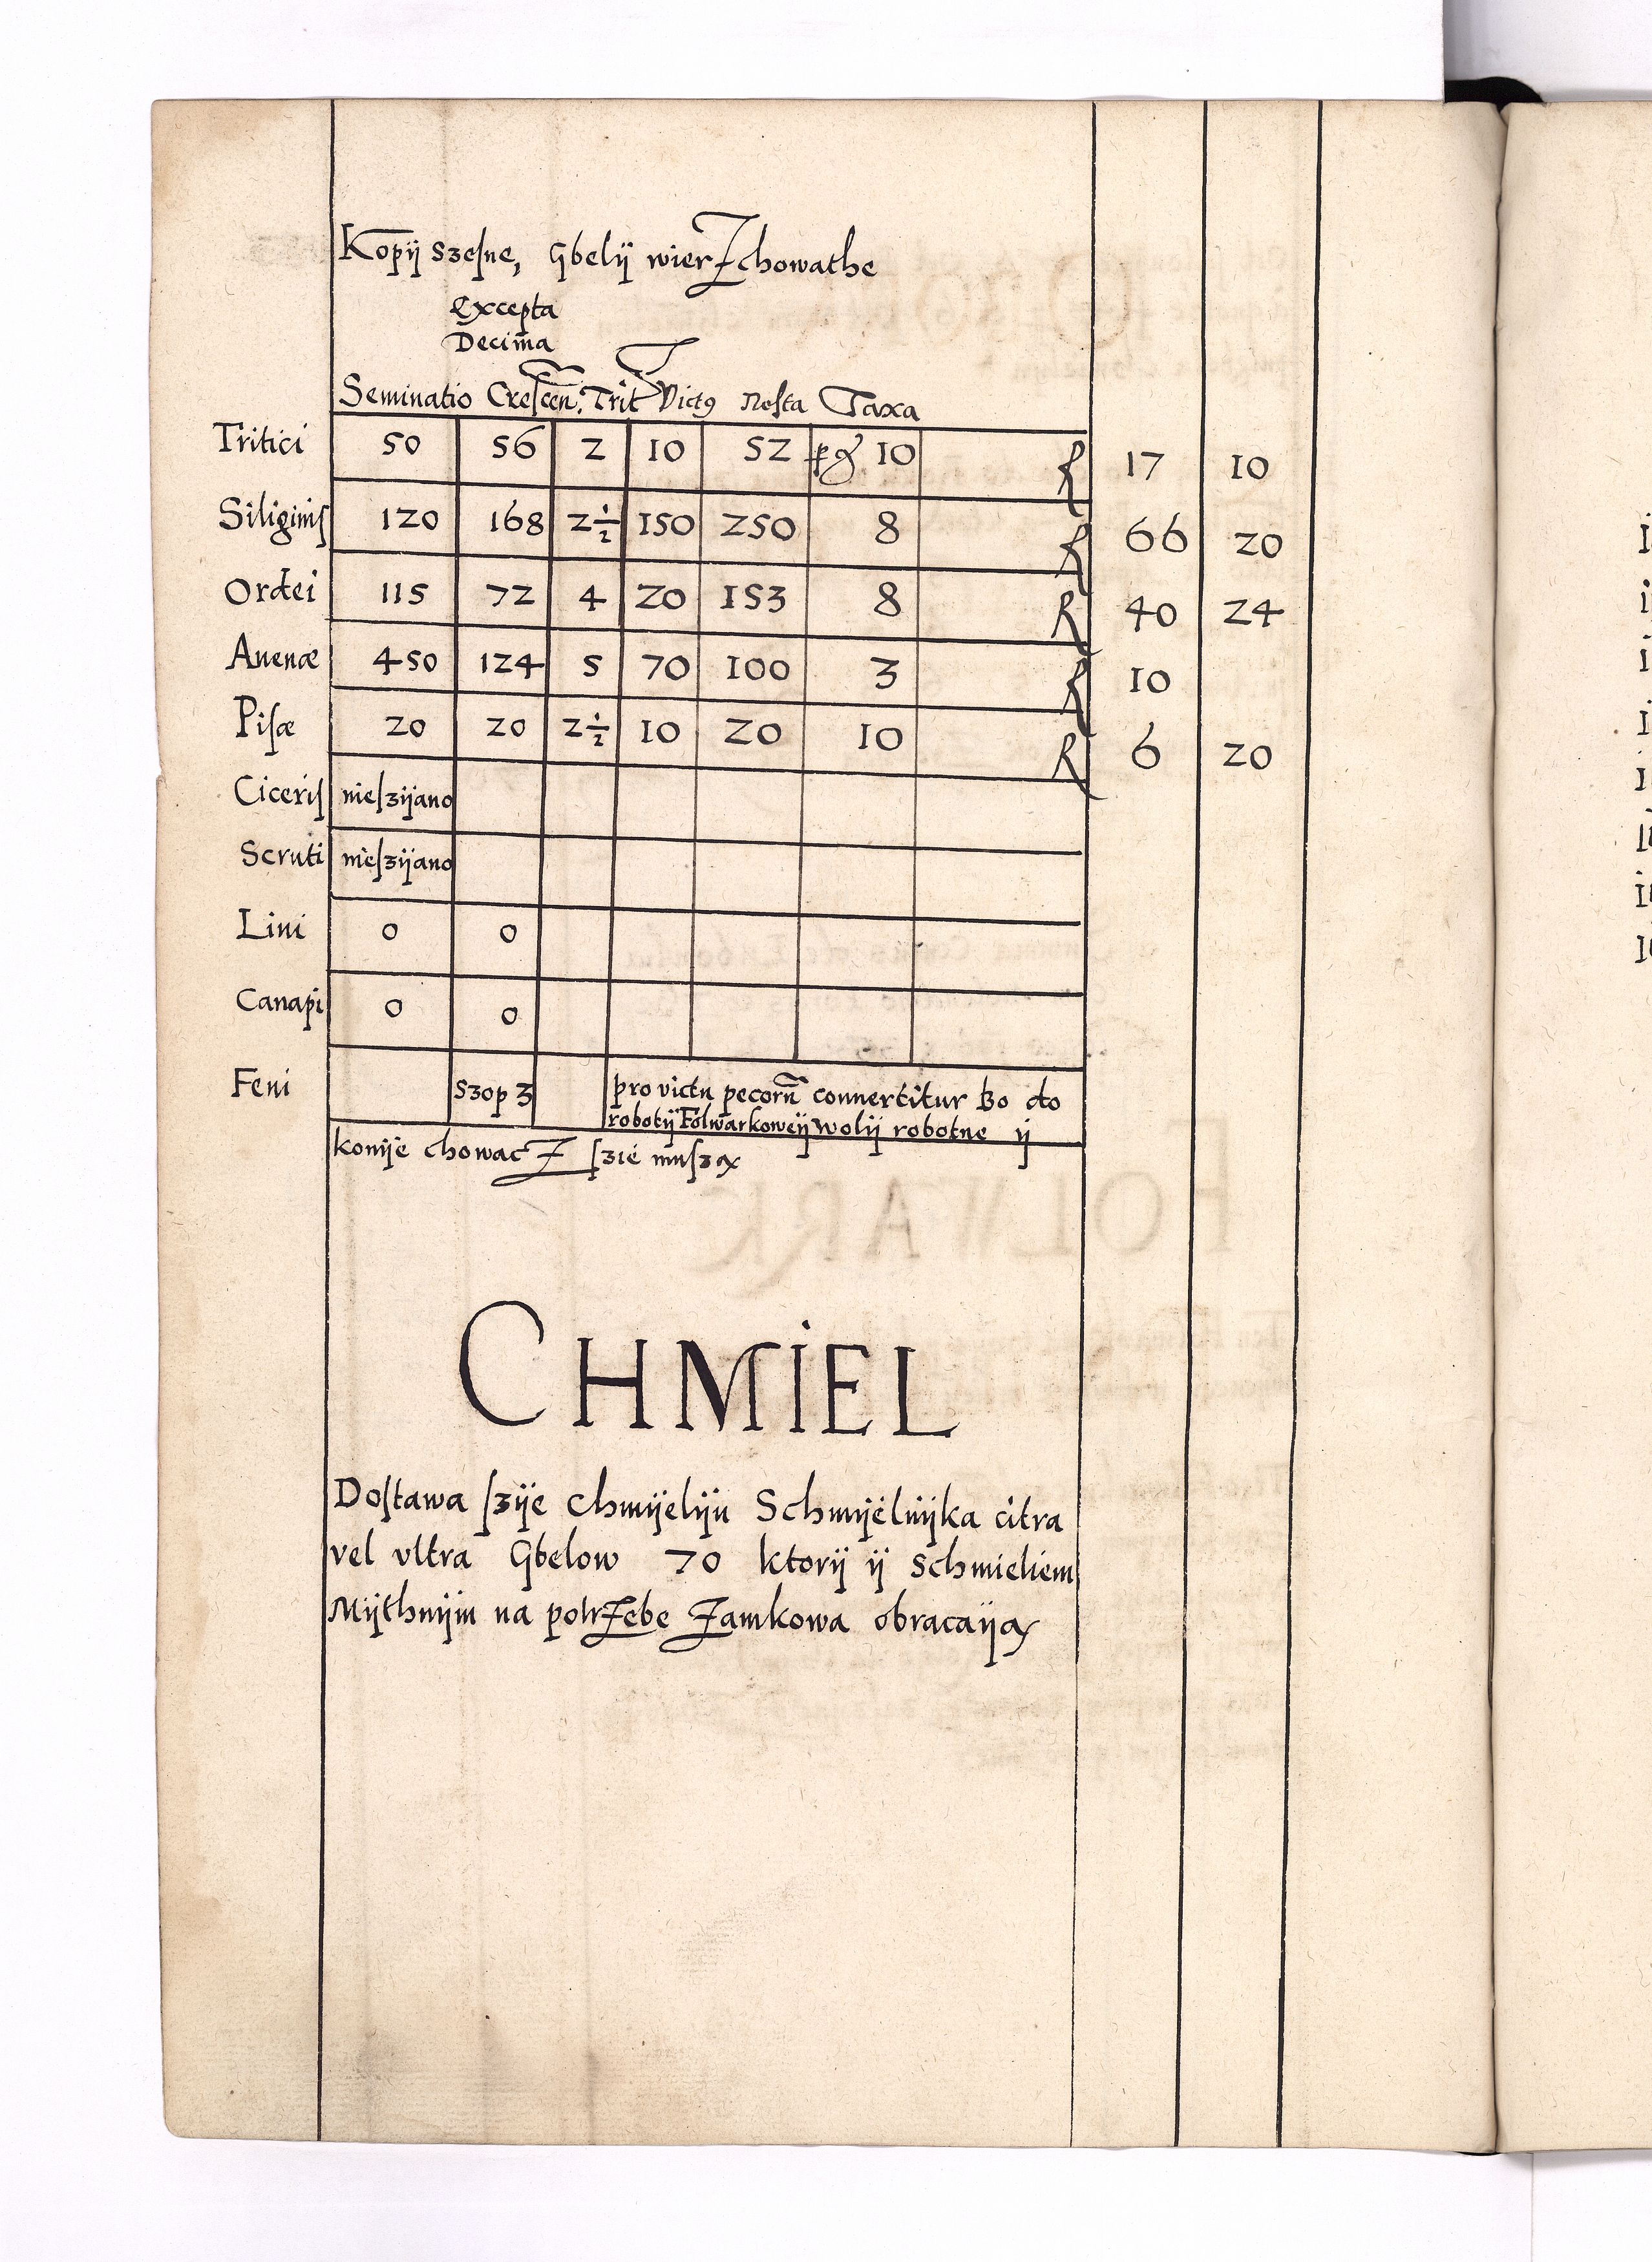 Kopÿ szesne, Gbelÿ wierzchowathe
Excepta
Decima
Seminatio Crescen. Trit Victꝯ Resta Taxa
Tritici 50 56 2 10 52 10 17 10
Siliginis 120 168 2½ 150 250 8 66 20
Ordei 115 72 4 20 153 8 40 24
Auenæ 450 124 5 70 100 3 10
Pisæ 20 20 2½ 10 20 10 6 20
Ciceris nieszÿano
Scruti nieszÿano
Lini 0 0
Canapi 0 0
Feni szop 3 pro victu pecorū conuertitur bo do
robotÿ Folwarkoweÿ wolÿ robotne ÿ
konÿe chowacz szie musza
CHMIEL
Dostawa szÿe Chmÿelÿu Schmÿelnÿka citra
vel vltra Gbelow 70 ktorÿ ÿ schmieliem
Mÿthnÿm na potrzebe Zamkowa obracaÿa